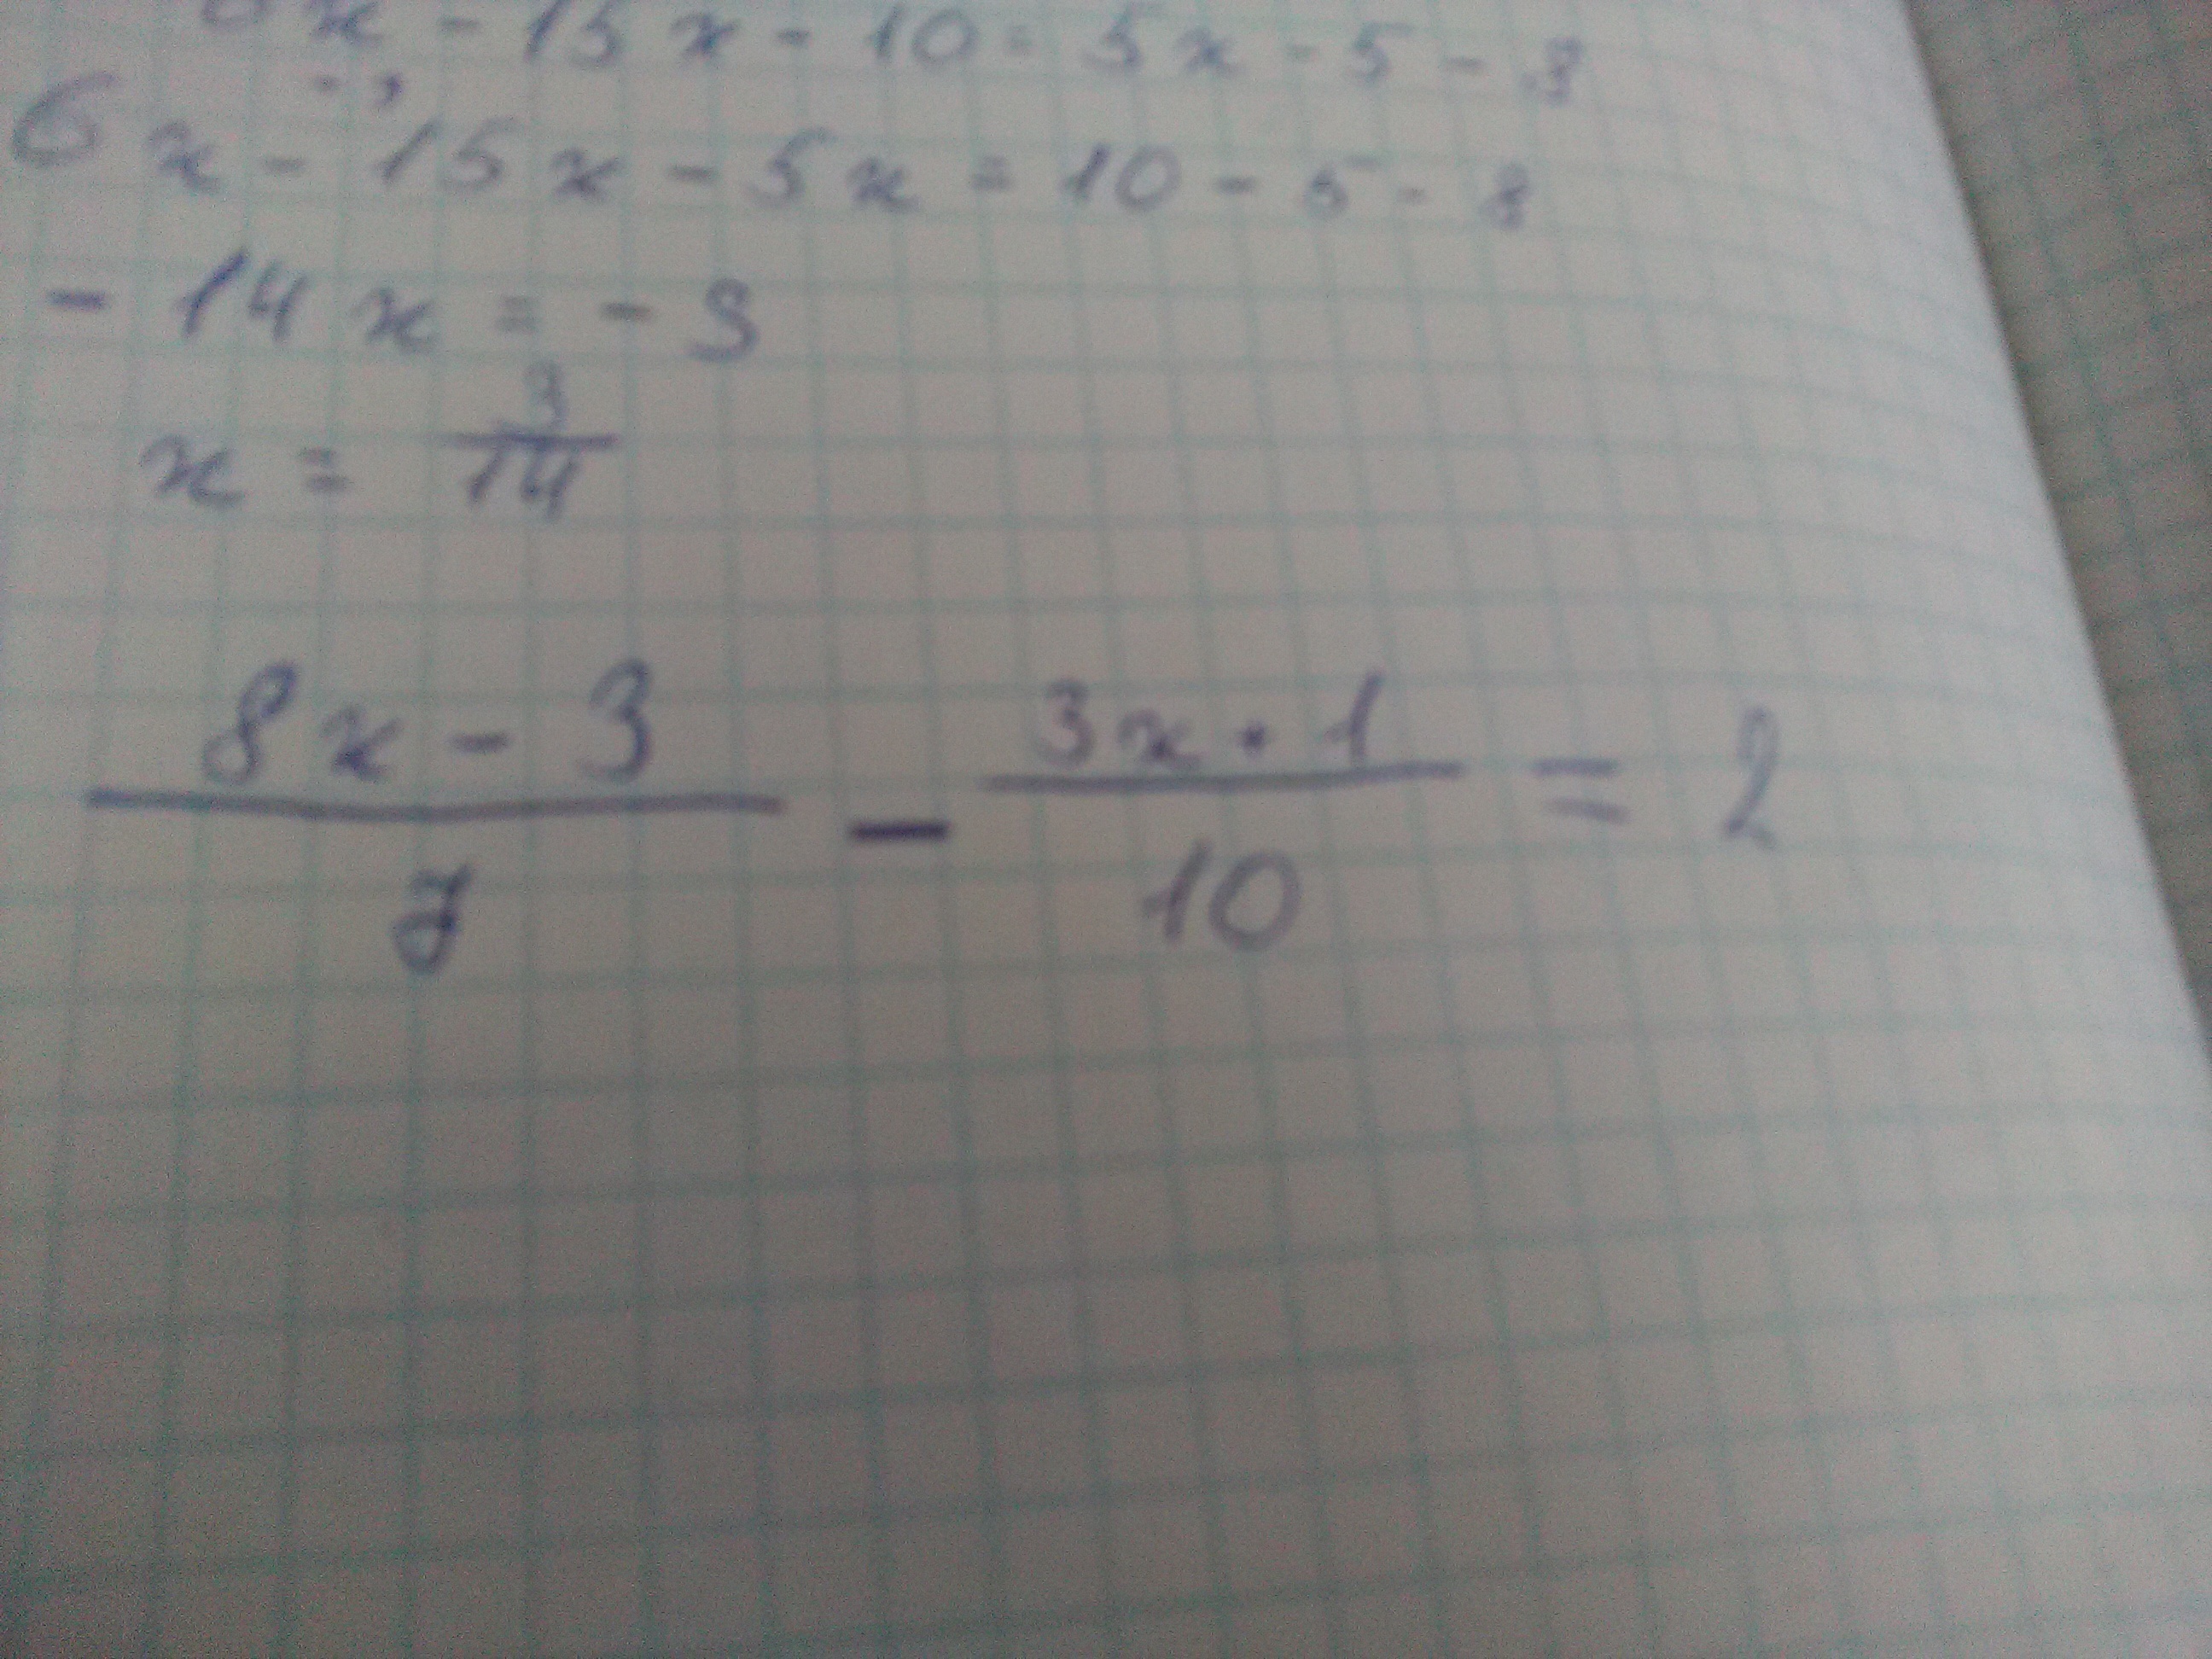 6x - 15x - 10 = 5x - 5 - 8
6x - 15x - 5x = 10 - 5 - 8
- 14x = - 3
x = 3/14
(8x - 3)/7 - (3x + 1)/10 = 2